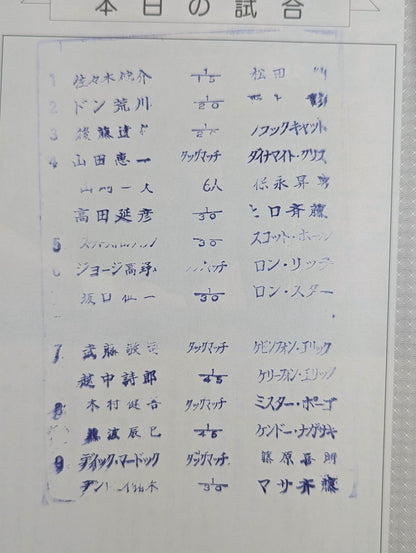 本日の試合
1 佐々木健介 1/15 松田
2 ドン荒川 1/20
3 後藤達 1/2 ブラックキャット
4 山田恵一 タッグマッチ ダイナマイト・クリス
山 一 6人 保永昇
高田延彦 1/30 ヒロ斉藤
5 30 スコット・ホール
ジョージ高野 マッチ ロン・リッチ
坂口征一 1/30 ロン・スター
7 武藤敬司 タッグマッチ ケビンフォン・エリック
越中詩郎 1/45 ケリーフォン・エリック
8 木村健吾 タッグマッチ ミスター・ポーゴ
難波辰巳 1/45 ケンドー・ナガサキ
9 ディック・マードック タッグマッチ 藤原喜明
猪木 1/30 マサ斉藤